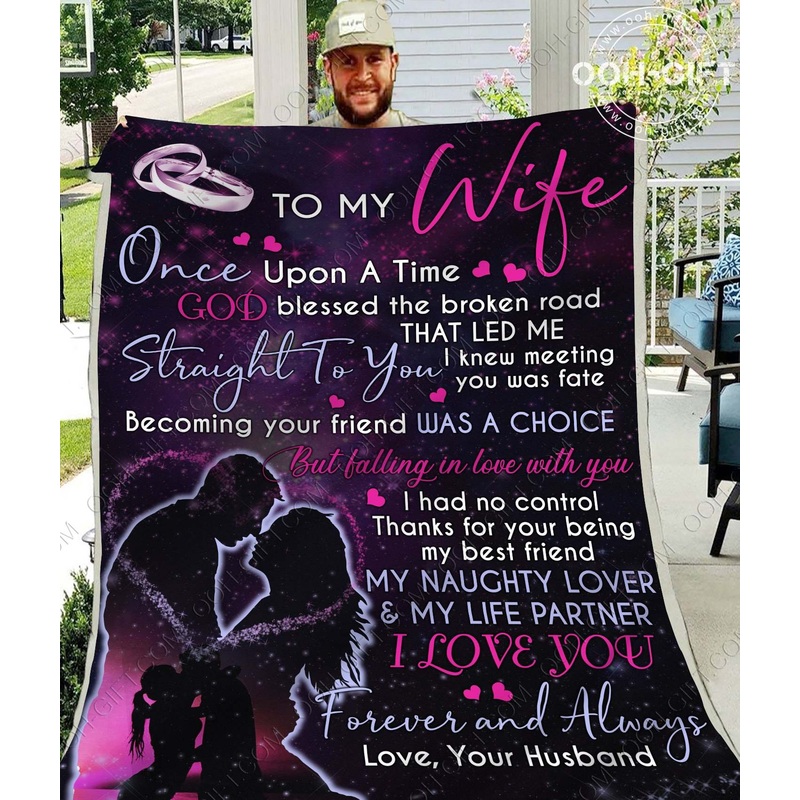 www.ooh-gift
OOH-GIFT
TO MY Wife
Once Upon A Time
GOD blessed the broken road
THAT LED ME
Straight To You
I knew meeting
you was fate
Becoming your friend WAS A CHOICE
But falling in love with you
I had no control
Thanks for your being
my best friend
MY NAUGHTY LOVER
& MY LIFE PARTNER
I LOVE YOU
Forever and Always
Love, Your Husband
OOH-GIFT.COM